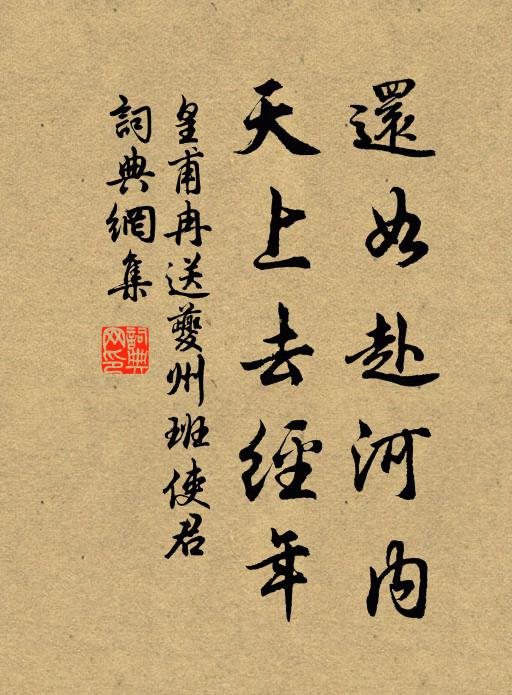 還如赴河內
天上去經年
皇甫冉送夔州班使君
詞典網集
詞典網印